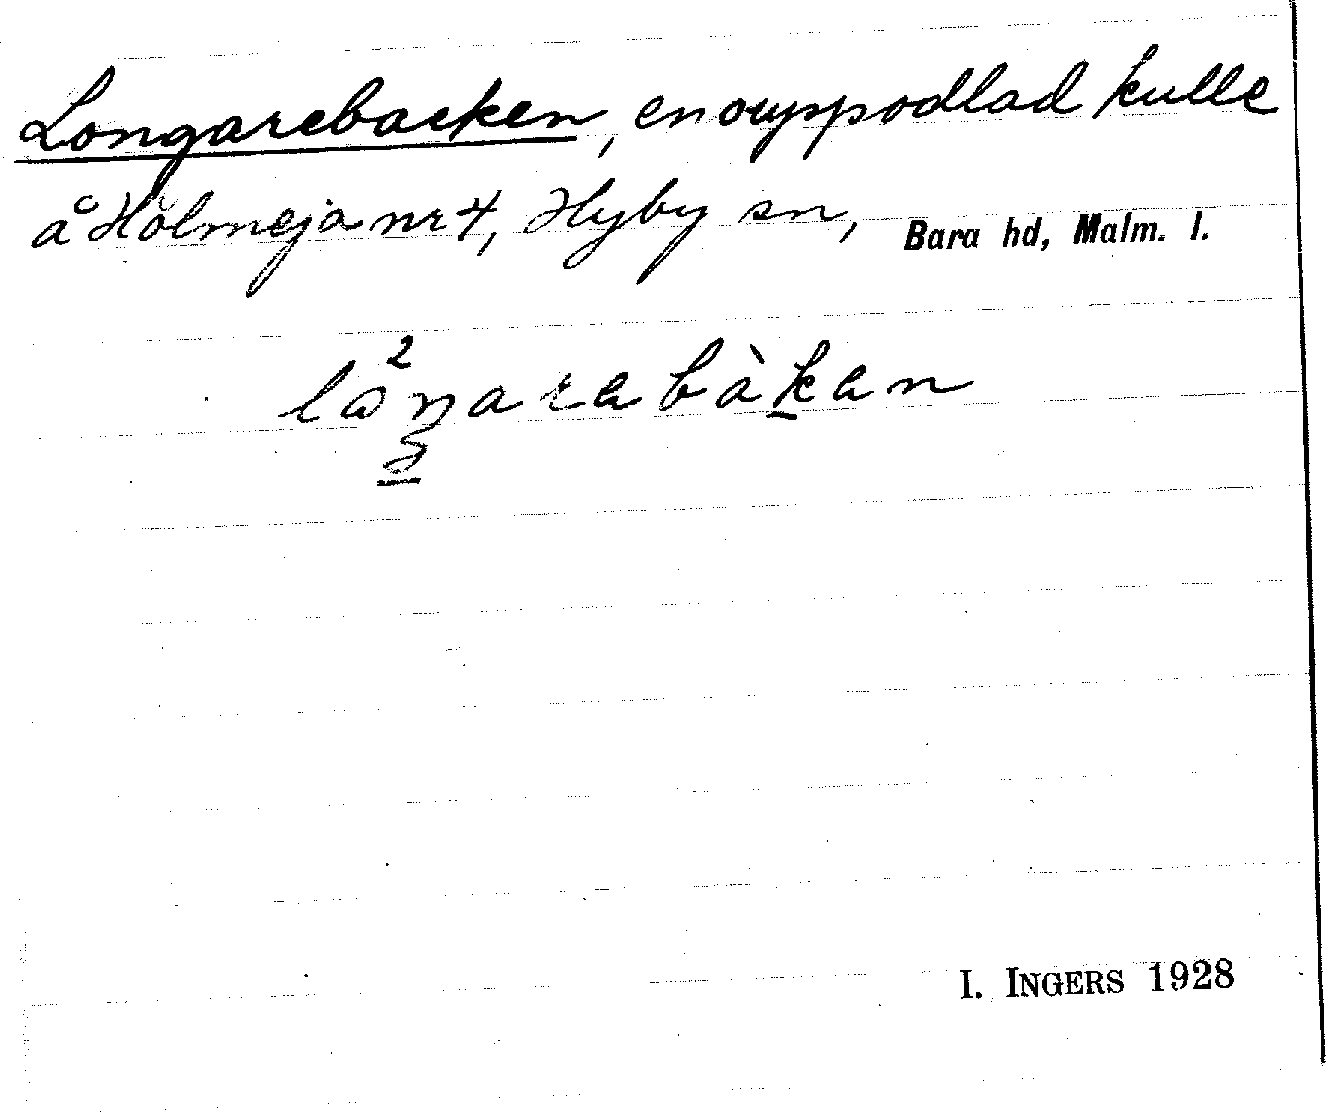 Longarebacken, en ouppodlad kulle
å Holmeja nr 4, Hyby sn, Bara hd, Malm. l.
I. INGERS 1928